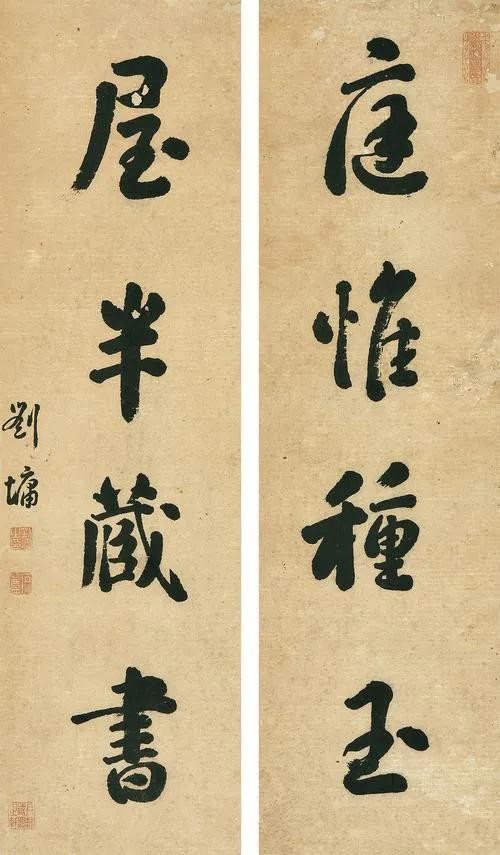 庭惟種玉
屋半藏書
劉墉